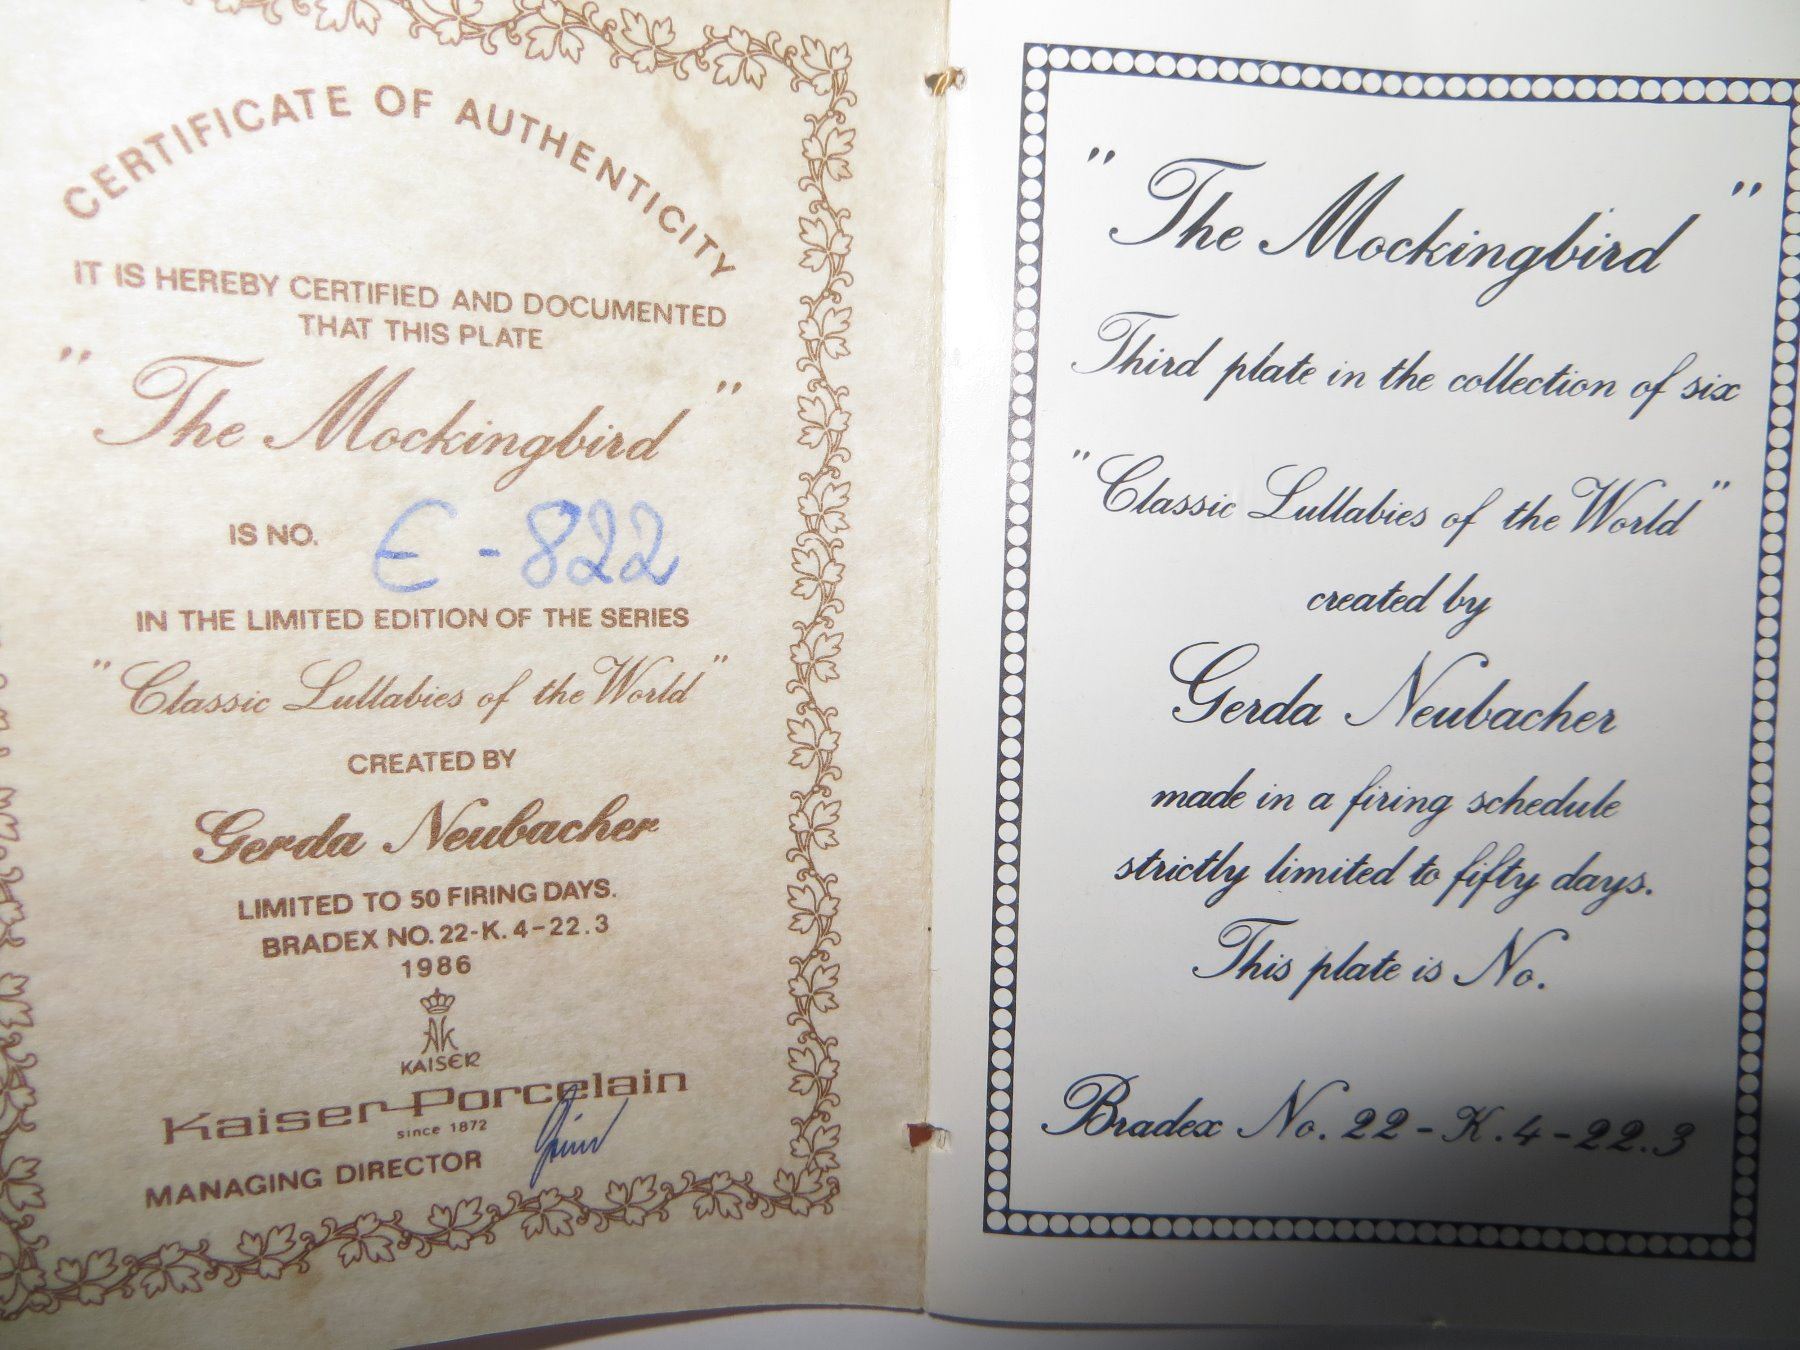 CERTIFICATE OF AUTHENTICITY
IT IS HEREBY CERTIFIED AND DOCUMENTED
THAT THIS PLATE
"The Mockingbird"
IS NO. E-822
IN THE LIMITED EDITION OF THE SERIES
"Classic Lullabies of the World"
CREATED BY
Gerda Neubacher
LIMITED TO 50 FIRING DAYS.
BRADEX NO. 22-K. 4-22.3
1986
AK
KAISER
Kaiser-Porcelain
since 1872
MANAGING DIRECTOR
"The Mockingbird"
Third plate in the collection of six
"Classic Lullabies of the World"
created by
Gerda Neubacher
made in a firing schedule
strictly limited to fifty days.
This plate is No.
Bradex No. 22-K.4-22.3